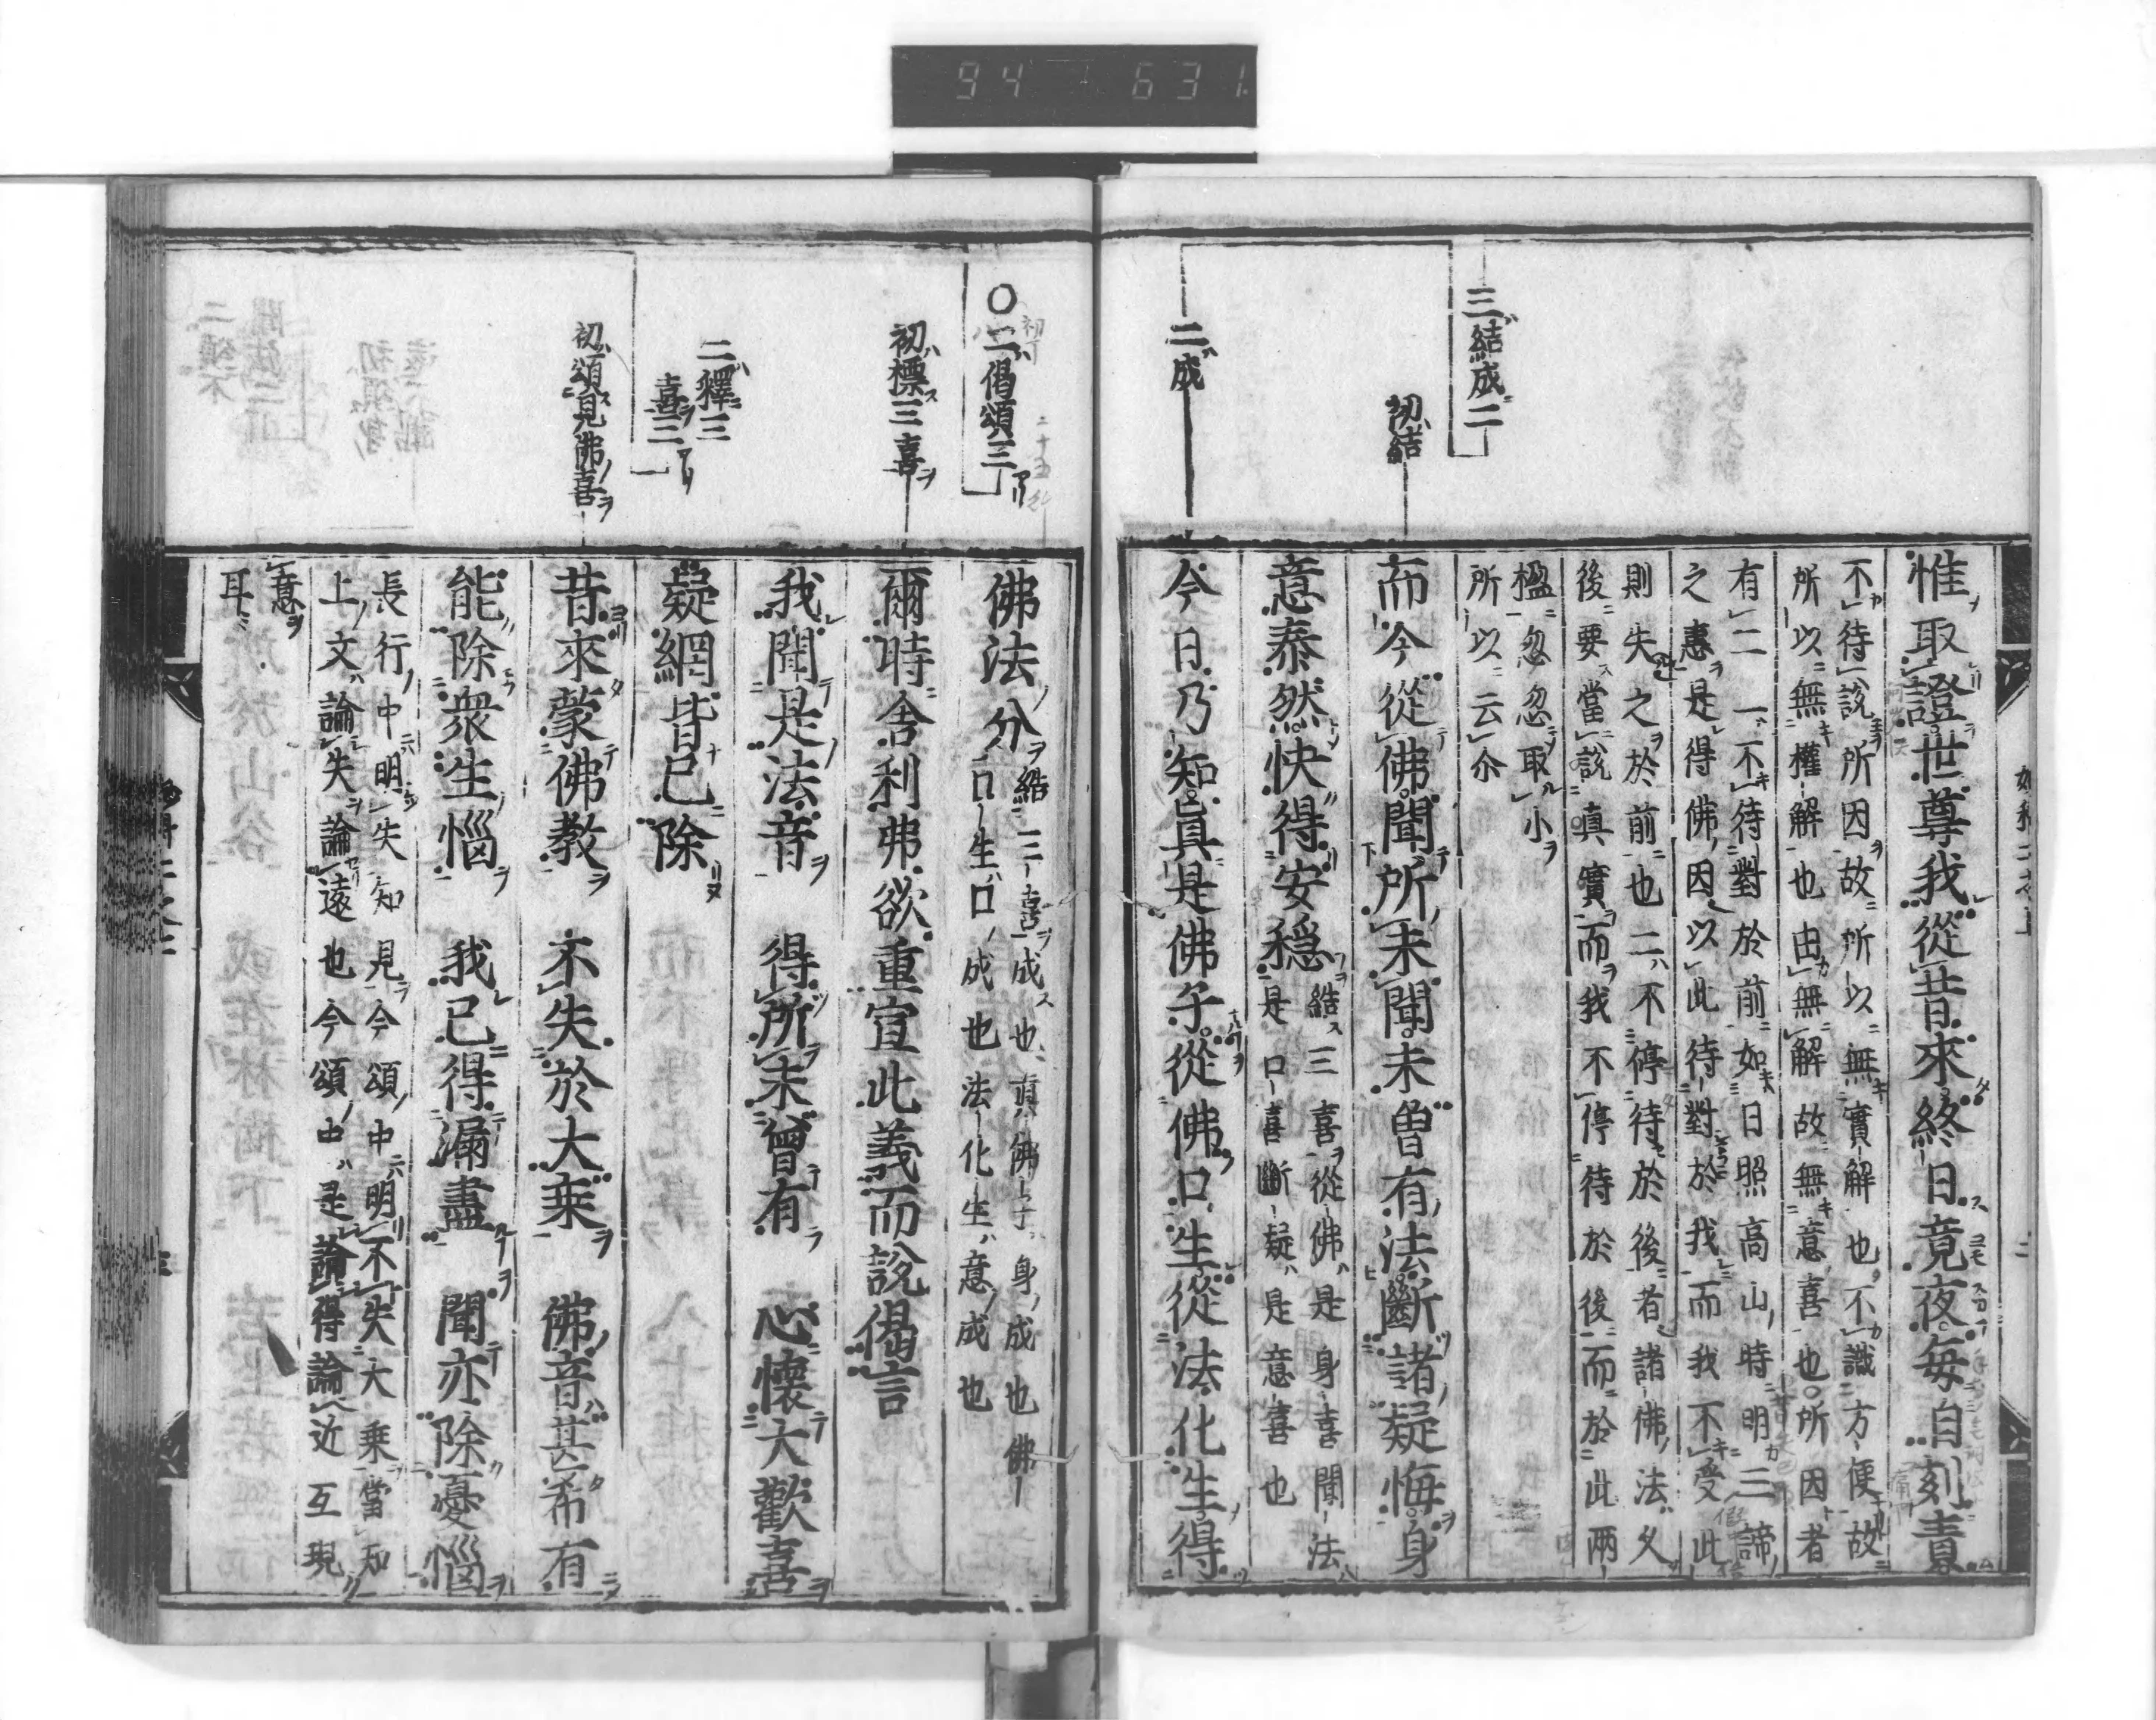 94 631
三結成二
初結
二成
惟取證世尊我從昔來終日竟夜每自剋責
不待說所因故所以無實解也不識方便故
所以無權解也由無解故無意喜也○所因者
有二一不待對於前如日照高山時明三諦
之惠是得佛因以此待對於我而我不受此
則失之於前也二不停待於後者諸佛法久
後要當說真實而我不停待於後而於此兩
楹忽忽取小
所以云尒
而今從佛聞所未聞未曾有法斷諸疑悔身
意泰然快得安穩
結三喜從佛是身喜聞法
是口喜斷疑是意喜也
今日乃知真是佛子從佛口生從法化生得
○二偈頌三
初標三喜
二釋三
喜三
初頌見佛喜
佛法分
結三喜成也真佛子身成也佛
口生口成也法化生意成也
爾時舍利弗欲重宣此義而說偈言
我聞是法音 得所未曾有 心懷大歡喜
疑網皆已除
昔來蒙佛教 不失於大乘 佛音甚希有
能除眾生惱 我已得漏盡 聞亦除憂惱
長行中明失知見今頌中明不失大乘當知
上文論失論遠也今頌中是論得論近互現
意
耳